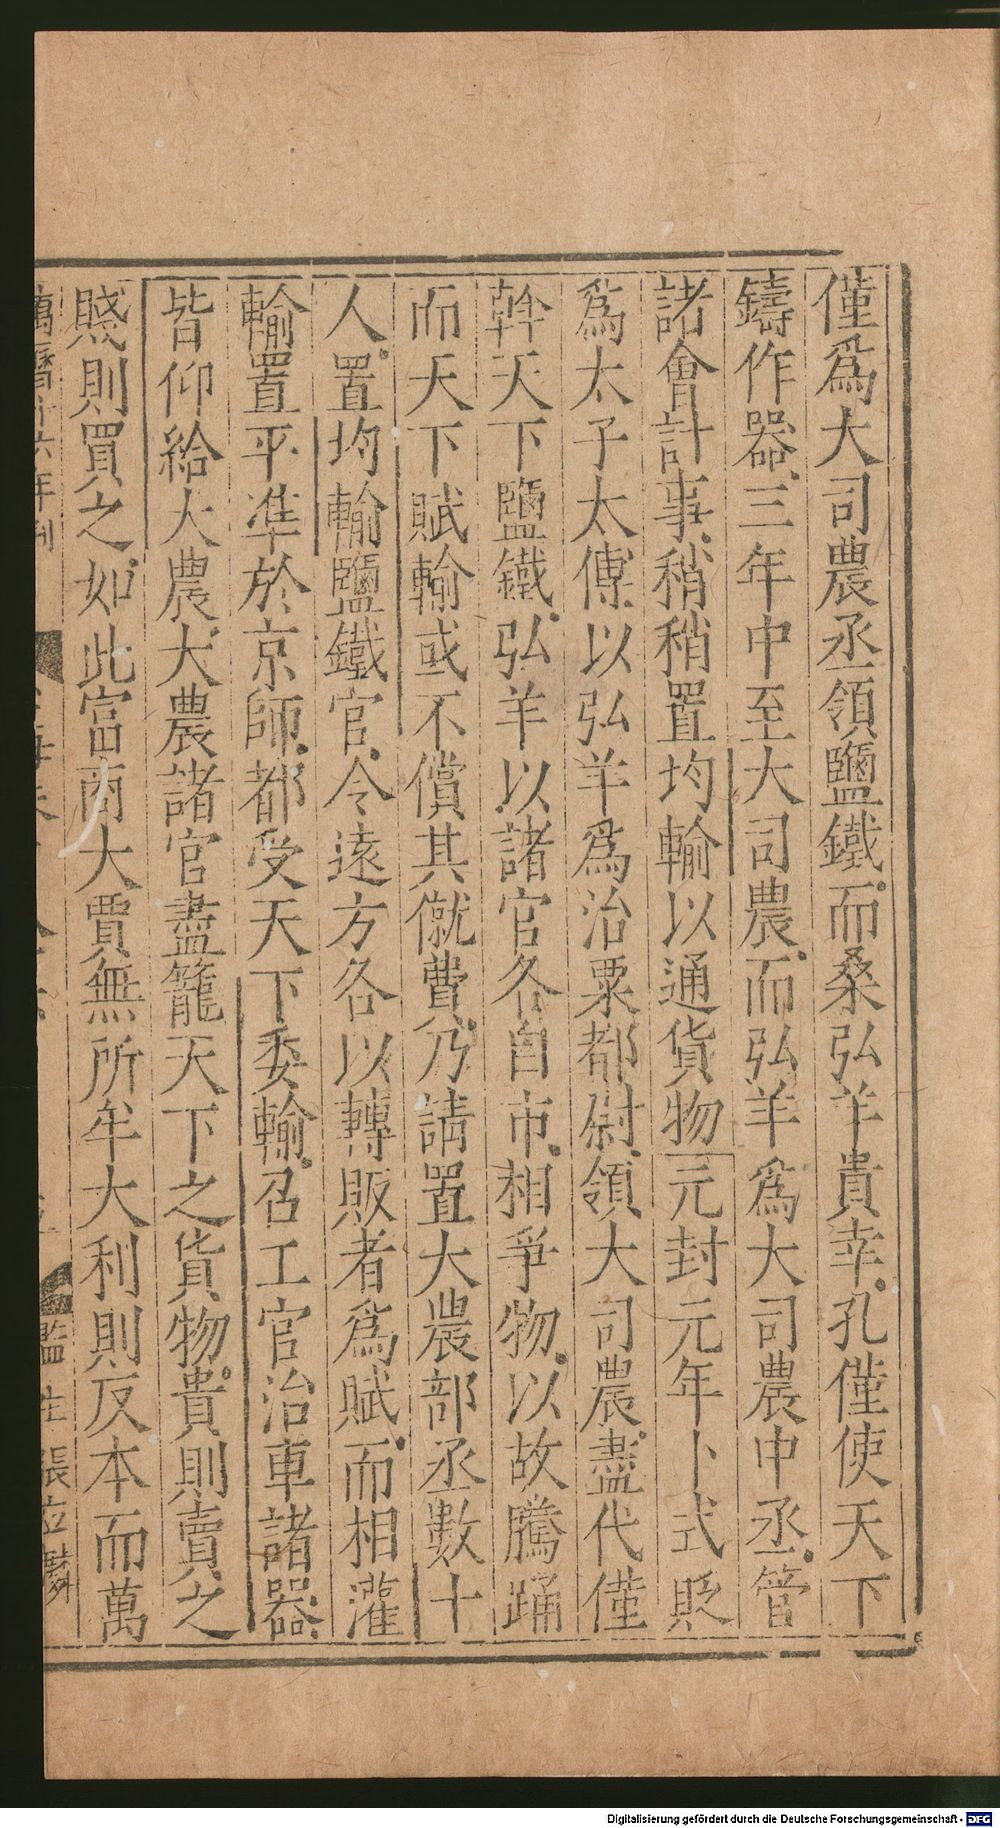 僅爲大司農丞領鹽鐵而桑弘羊貴幸孔僅使天下
鑄作器三年中至大司農而弘羊爲大司農中丞管
諸會計事稍稍置均輸以通貨物元封元年卜式貶
爲太子太傅以弘羊爲治粟都尉領大司農盡代僅
斡天下鹽鐵弘羊以諸官各自市相爭物以故騰踊
而天下賦輸或不償其僦費乃請置大農部丞數十
人置均輸鹽鐵官令遠方各以轉販者爲賦而相灌
輸置平準於京師都受天下委輸召工官治車諸器
皆仰給大農大農諸官盡籠天下之貨物貴則賣之
賤則買之如此富商大賈無所牟大利則反本而萬
萬曆十六年刊
監生張位
Digitalisierung gefördert durch die Deutsche Forschungsgemeinschaft - DFG